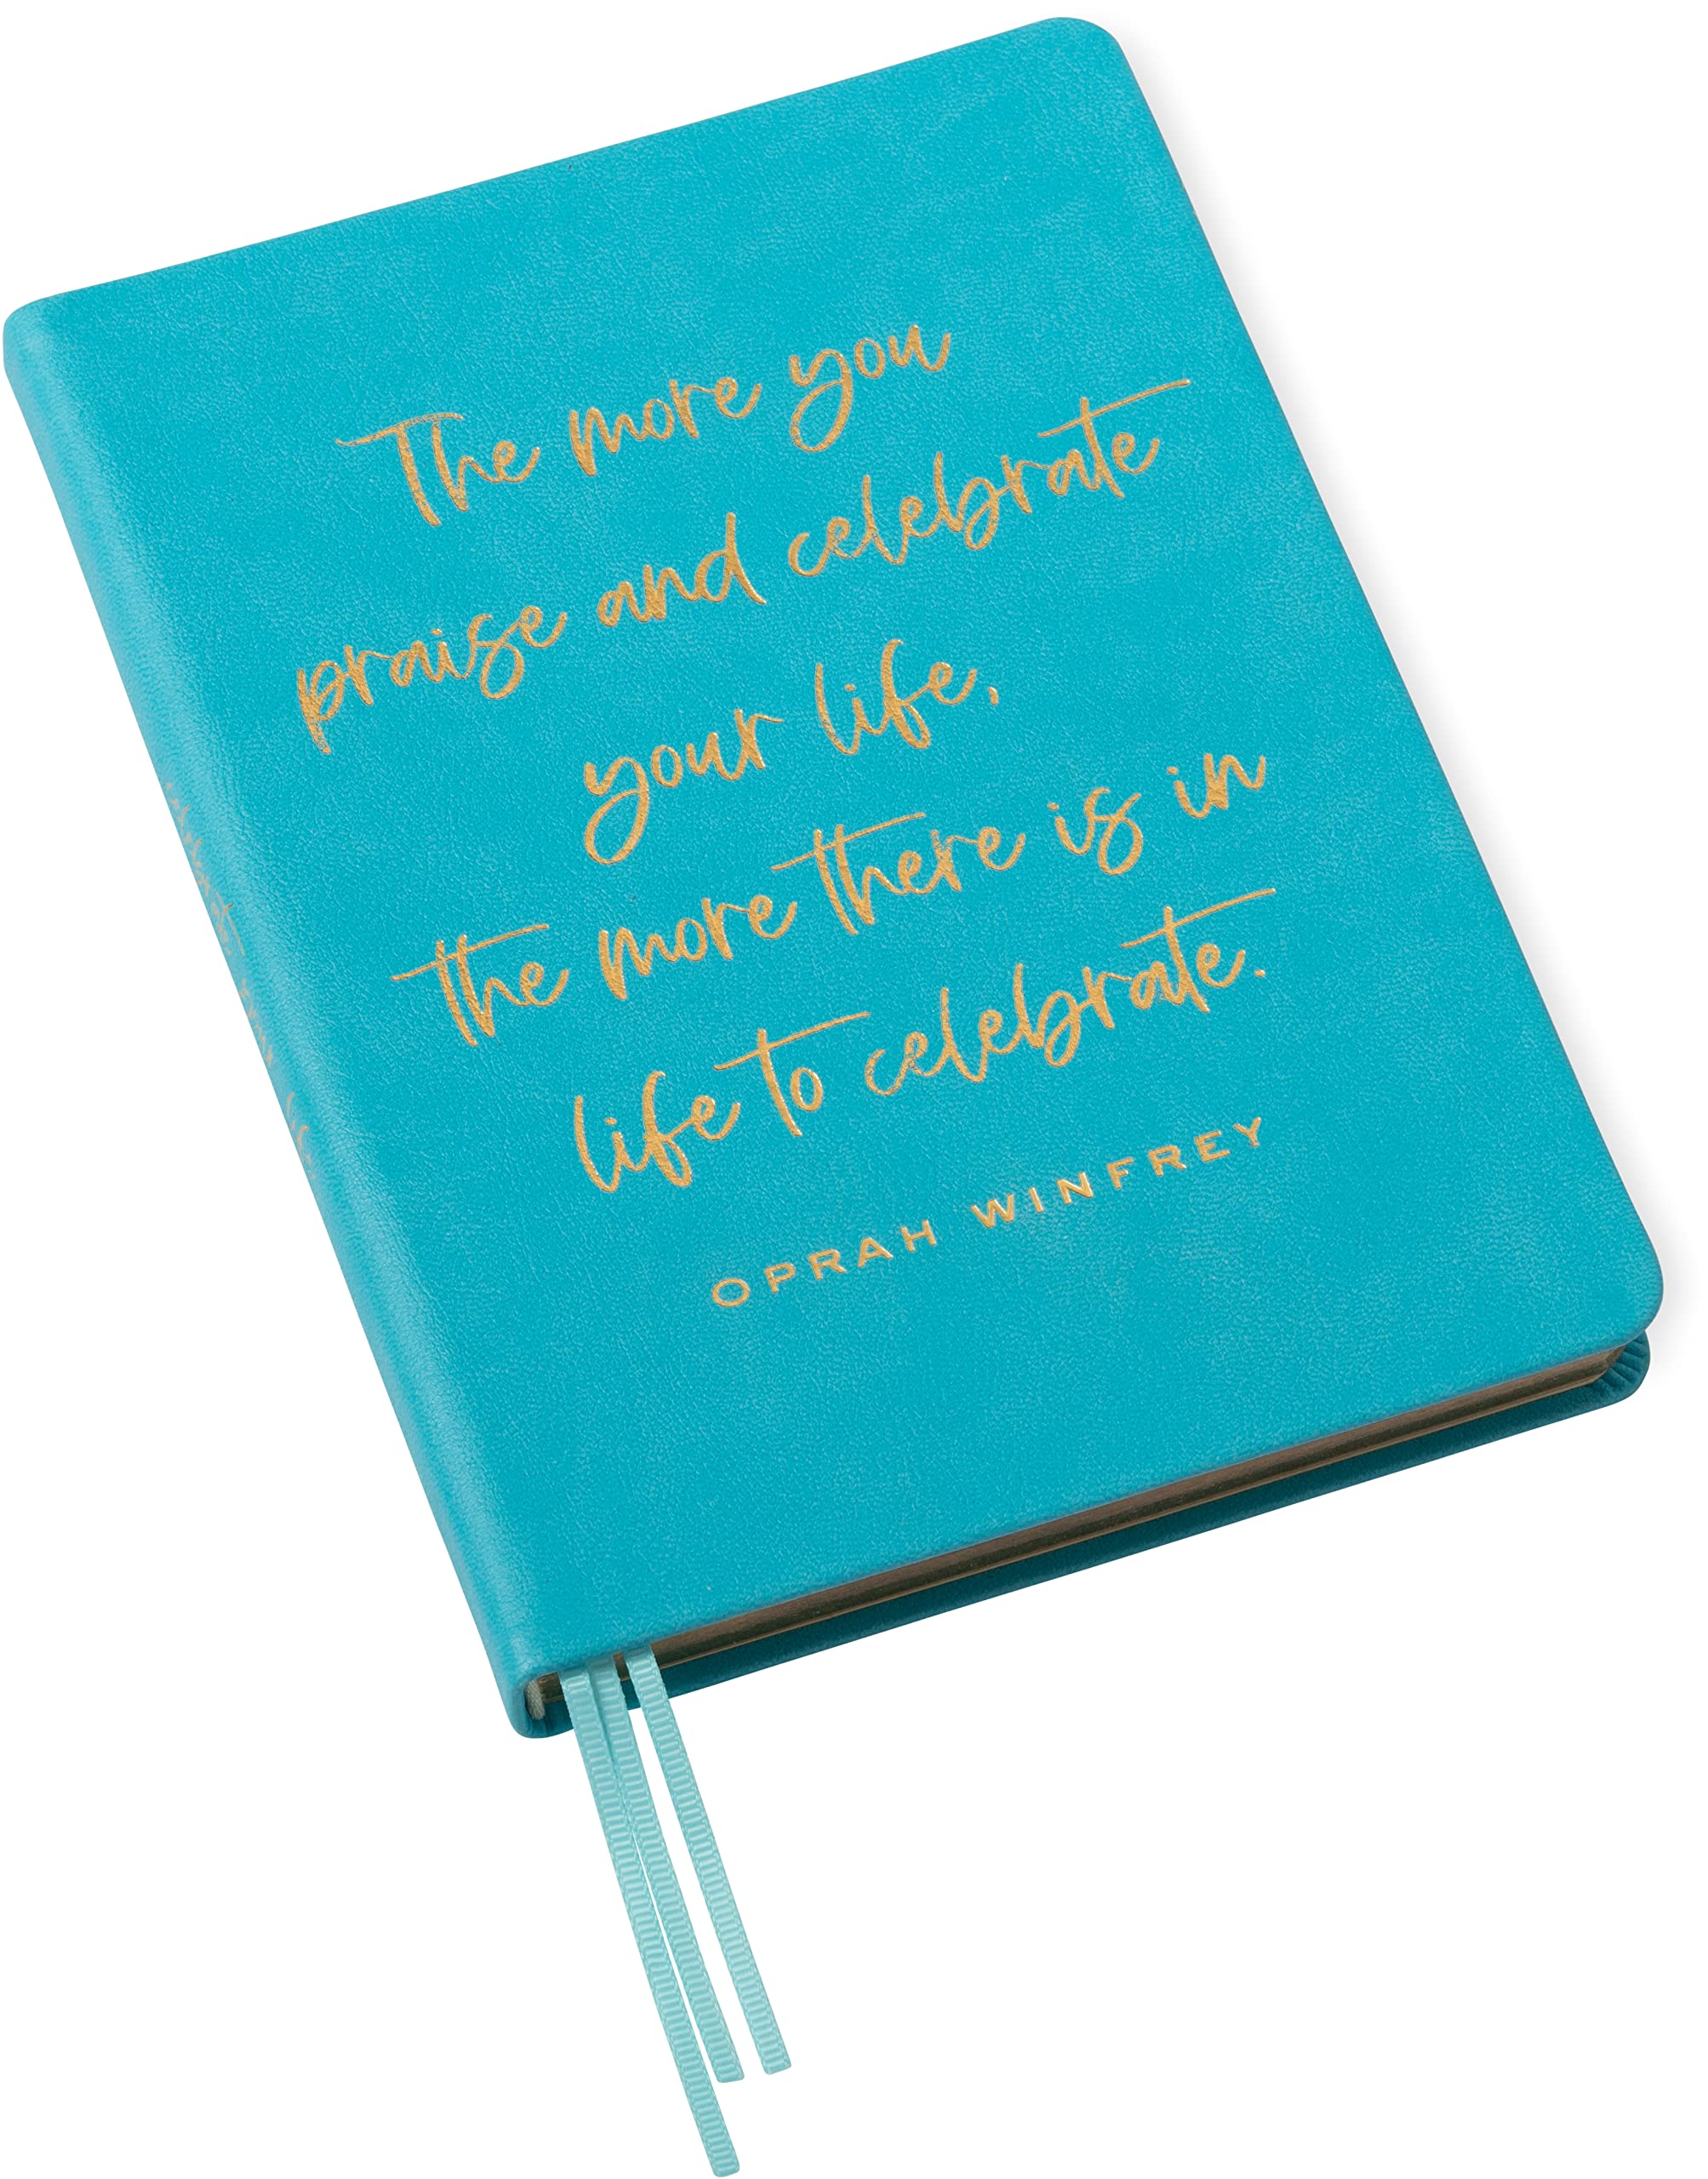 The more you
praise and celebrate
your life,
the more there is in
life to celebrate.
OPRAH WINFREY